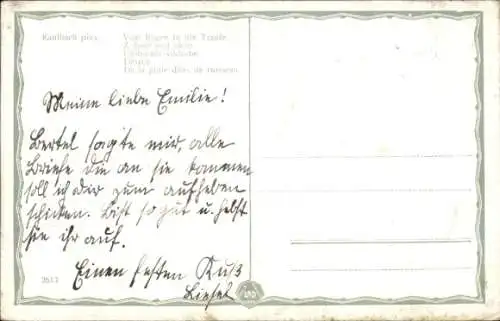 Kaulbach pinx.
Vom Regen in die Traufe
Meine liebe Emilie!
Bertel sagte mir, alle
Briefe die an sie kommen
soll ich dir zum aufheben
schicken. Bist so gut u. hebst
sie ihr auf.
Einen festen Kuß
Liesel
2517